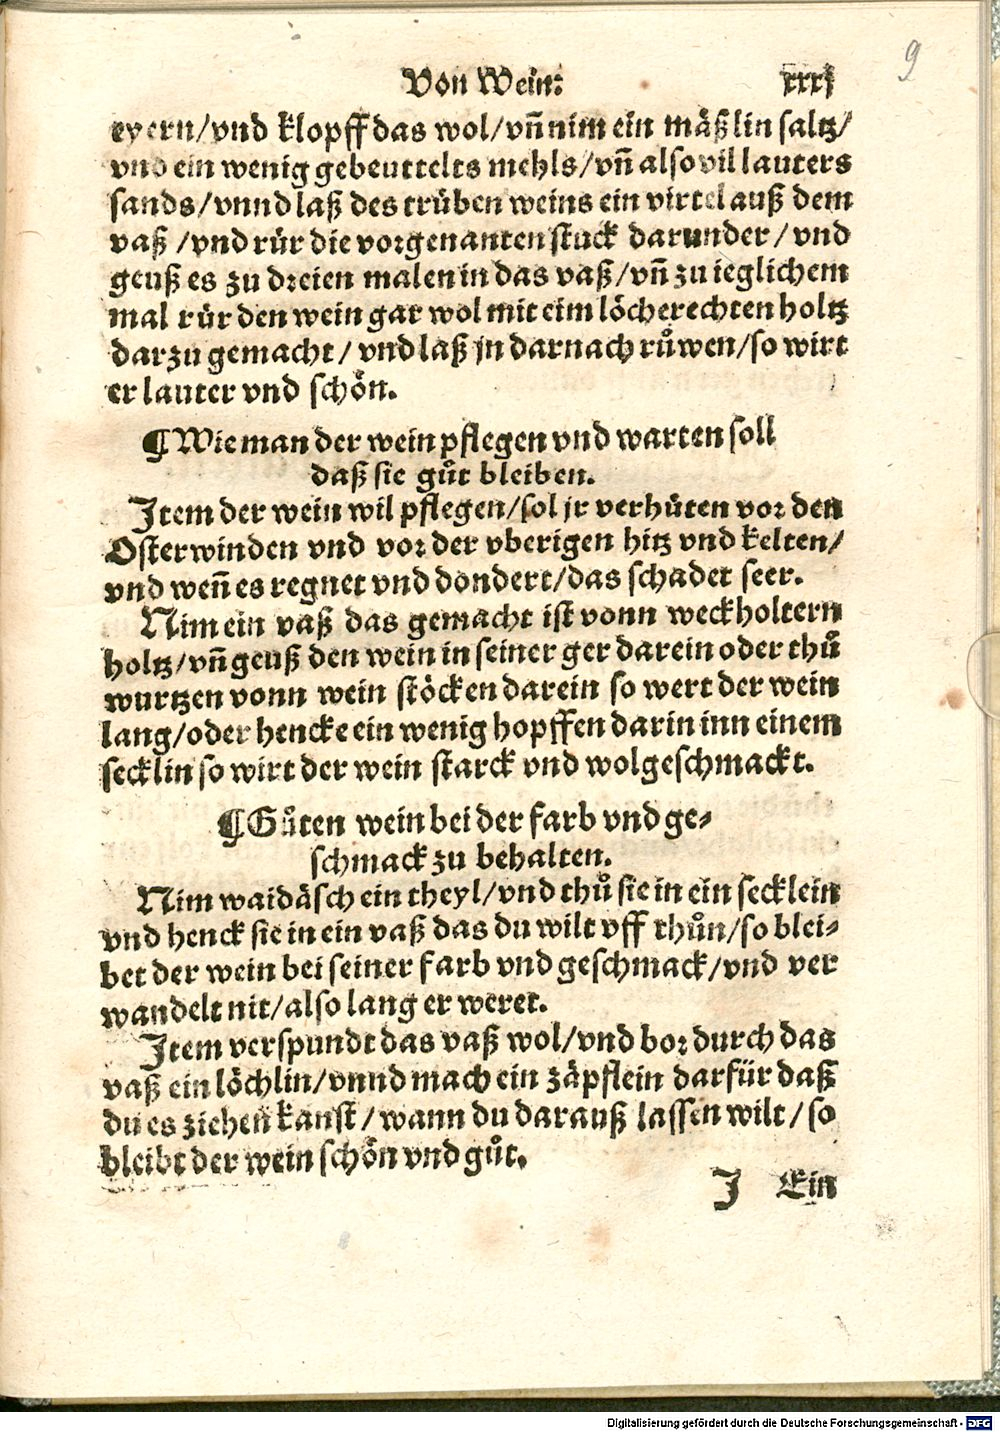 Von Wein: xxxj
9
eyern/vnd klopff das wol/vn̄ nim ein mäßlin saltz/
vnd ein wenig gebeuttelts mehls/vn̄ also vil lauters
sands/vnnd laß des trüben weins ein virtel auß dem
vaß/vnd rür die vorgenanten stuck darunder/vnd
geuß es zu dreien malen in das vaß/vn̄ zu ieglichem
mal rür den wein gar wol mit eim löcherechten holtz
darzu gemacht/vnd laß jn darnach růwen/so wirt
er lauter vnd schön.
¶Wie man der wein pflegen vnd warten soll
daß sie gůt bleiben.
Item der wein wil pflegen/sol jr verhüten vor den
Osterwinden vnd vor der vberigen hitz vnd kelten/
vnd wen̄ es regnet vnd dondert/das schadet seer.
Nim ein vaß das gemacht ist vonn weckholtern
holtz/vn̄ geuß den wein in seiner ger darein oder thů
wurtzen vonn wein stöcken darein so wert der wein
lang/oder hencke ein wenig hopffen darin inn einem
secklin so wirt der wein starck vnd wolgeschmackt.
¶Gůten wein bei der farb vnd ge-
schmack zu behalten.
Nim waidäsch ein theyl/vnd thů sie in ein secklein
vnd henck sie in ein vaß das du wilt vff thůn/so blei-
bet der wein bei seiner farb vnd geschmack/vnd ver
wandelt nit/also lang er weret.
Item verspundt das vaß wol/vnd bor durch das
vaß ein löchlin/vnnd mach ein zäpflein darfür daß
du es ziehen kanst/wann du darauß lassen wilt/so
bleibt der wein schön vnd gůt.
J Ein
Digitalisierung gefördert durch die Deutsche Forschungsgemeinschaft - DFG